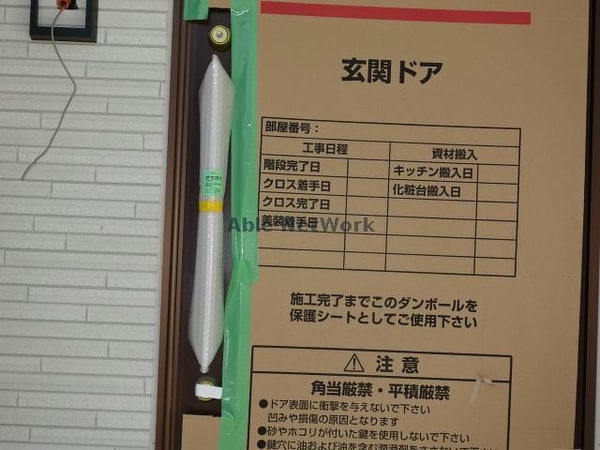 玄関ドア
部屋番号：
工事日程 資材搬入
階段完了日 キッチン搬入日
クロス着手日 化粧台搬入日
クロス完了日
美装着手日
Able NetWork
施工完了までこのダンボールを
保護シートとしてご使用下さい
⚠ 注意
角当厳禁・平積厳禁
●ドア表面に衝撃を与えないで下さい
凹みや損傷の原因となります
●砂やホコリが付いた鍵を使用しないで下さい
●鍵穴に油および油を含む潤滑剤をささないで下さい